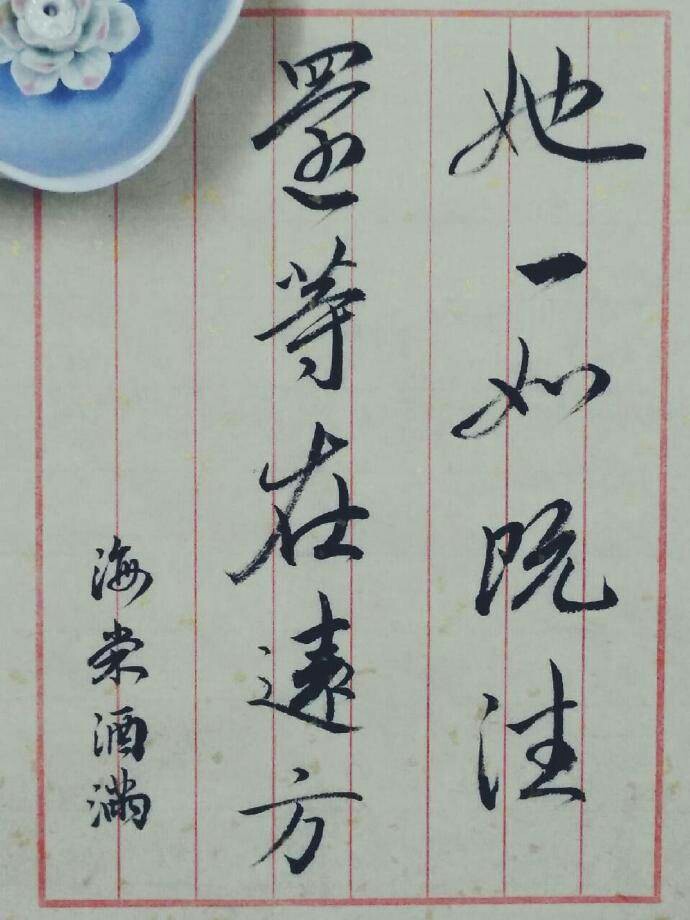 她一如既往
還等在遠方
海棠酒滿